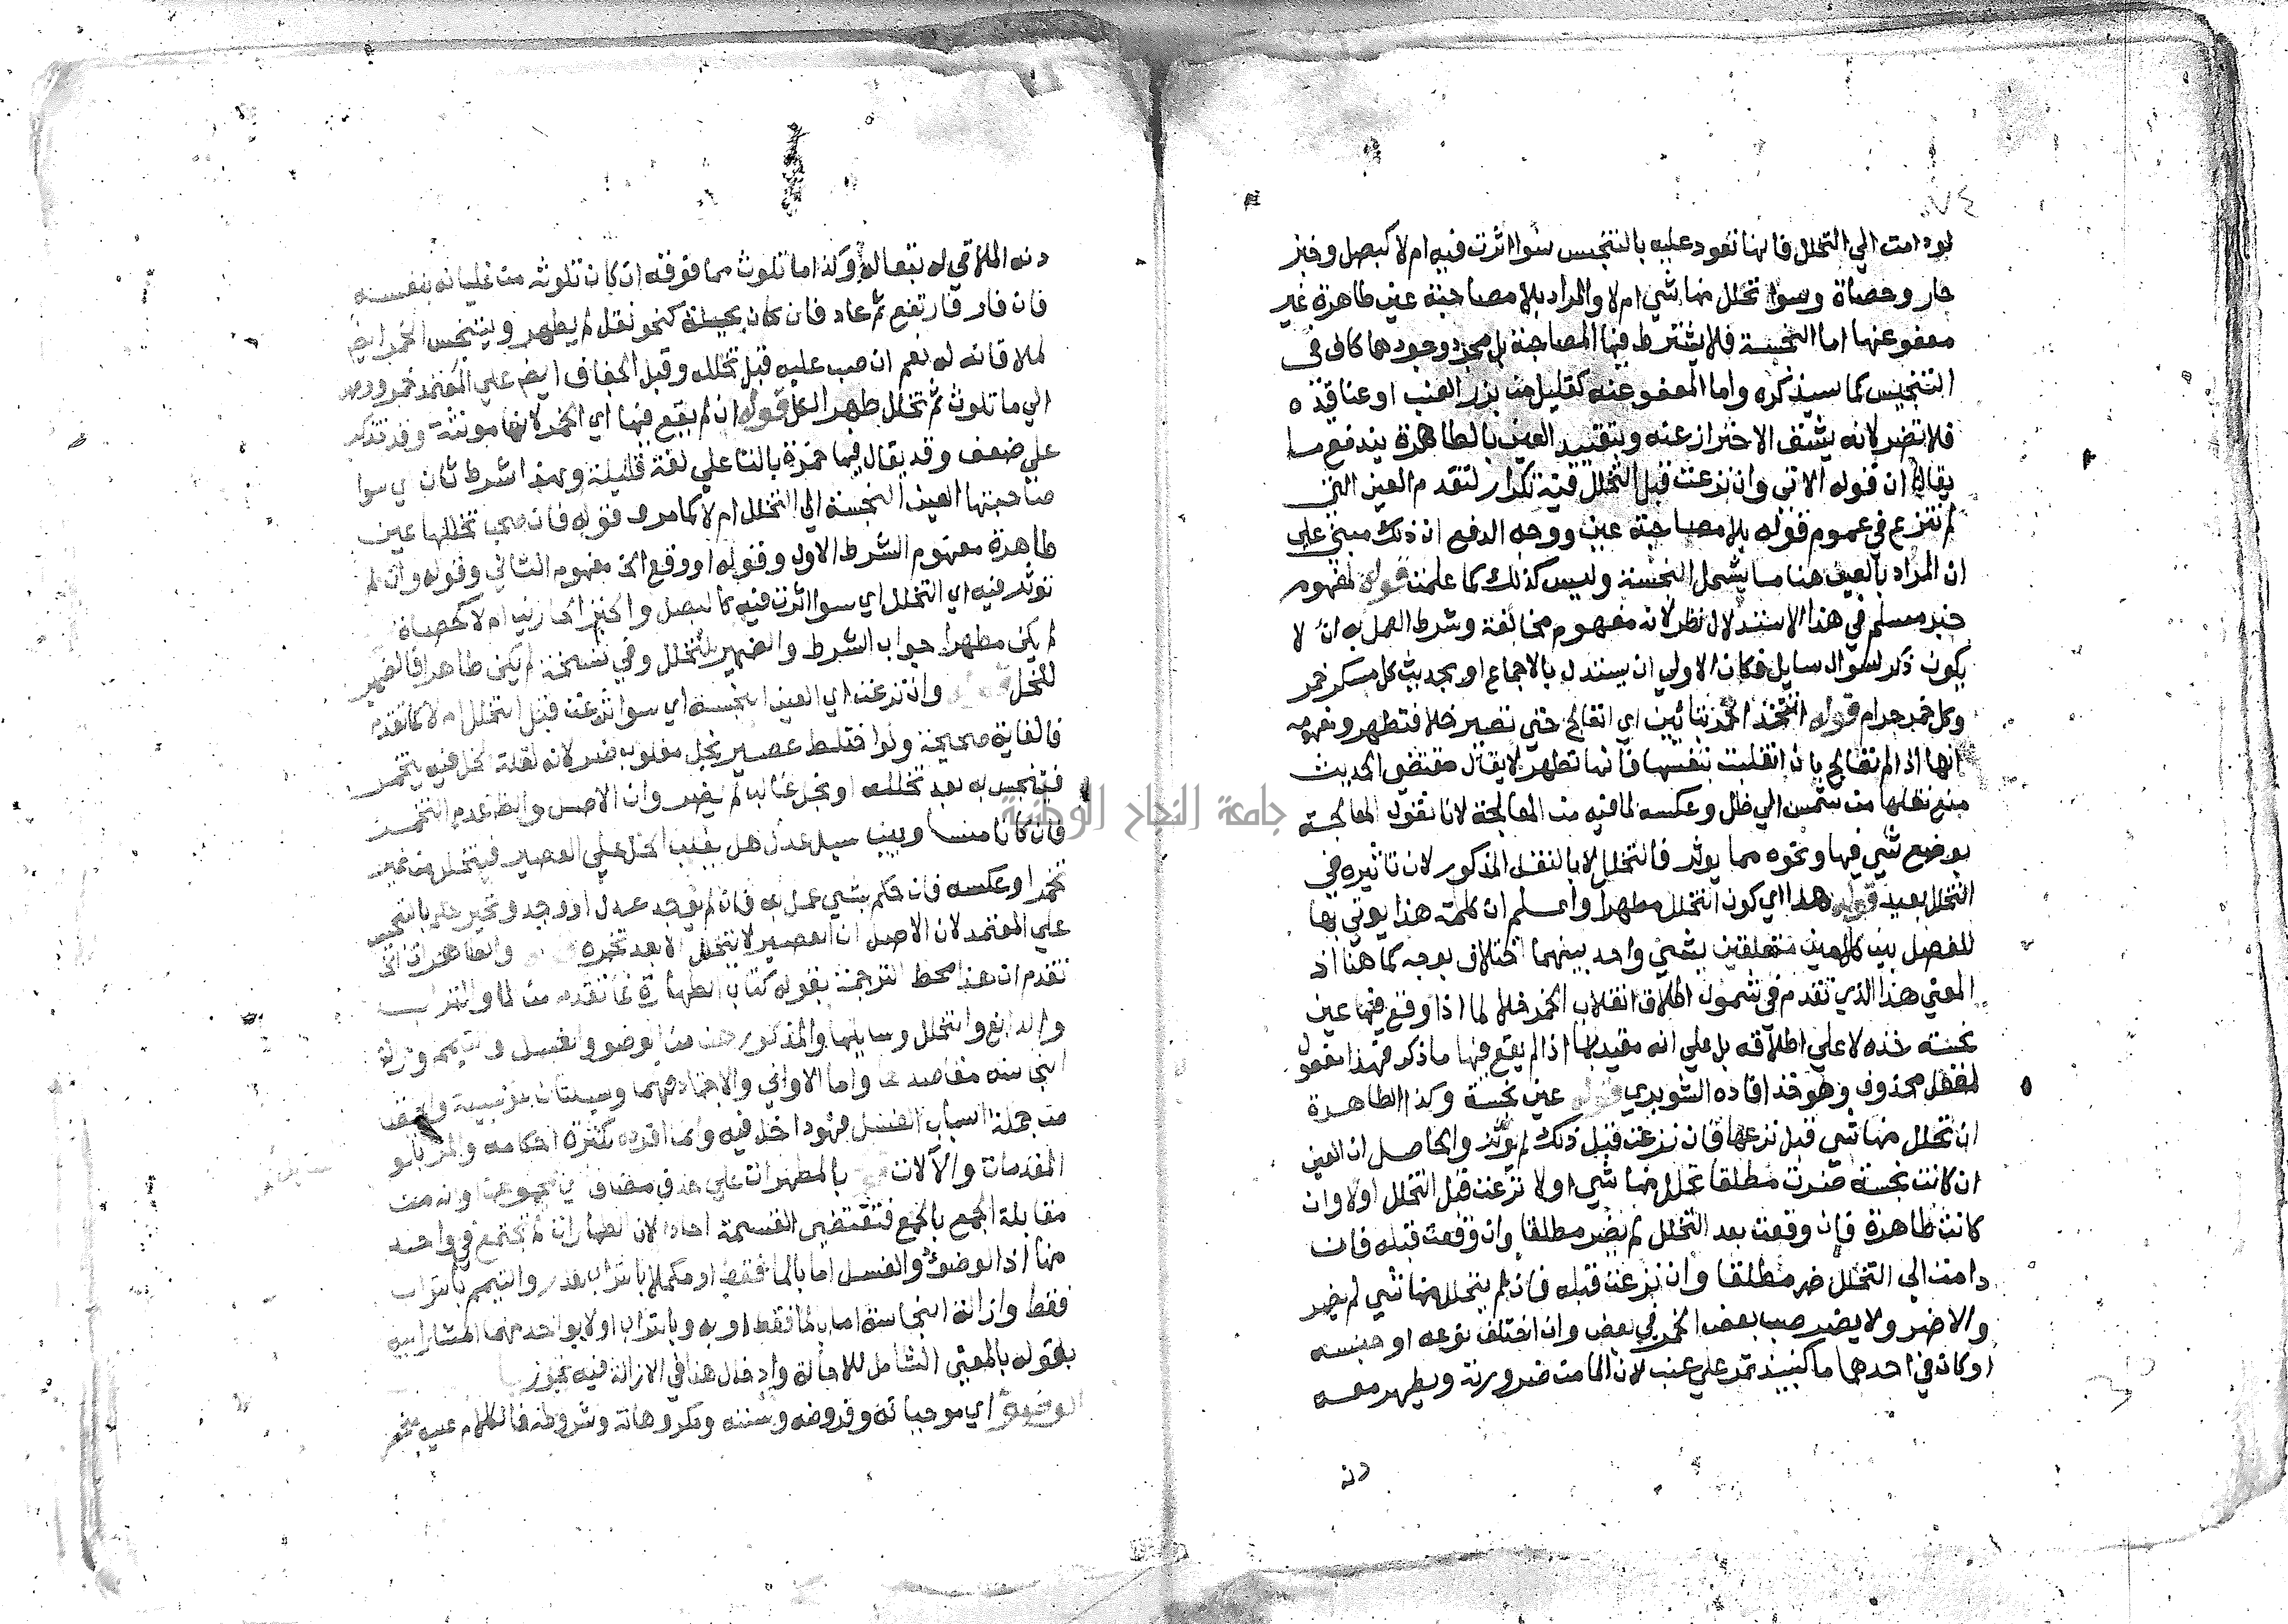 لودامت الي التخلل فانها تعود عليه بالتنجيس سوا اثرت فيه ام لا كبصل وخبز
حار وحصاة وسوا تخلل منها شي ام لا والمراد بلا مصاحبة عين طاهرة غير
معفو عنها اما النجسة فلا يشترط فيها المصاحبة بل مجرد وجودها كاف في
التنجيس كما سيذكره واما المعفو عنه كقليل من بزر العنب او عناقيده
فلا تضر لانه يشق الاحتراز عنه وبتقييد العين بالطاهرة يندفع ما
يقال ان قوله الاتي وان نزعت قبل التخلل فيه تكرار لتقدم العين التي
لم تنزع في عموم قوله بلا مصاحبة عين ووجه الدفع ان ذلك مبني على
ان المراد بالعين هنا ما يشمل النجسة وليس كذلك كما علمت قوله لمفهوم
خبر مسلم في هذا الاستدلال نظر لانه مفهوم مخالفة وشرط العمل به ان لا
يكون ذكر لسوال سايل فكان الاولي ان يستدل بالاجماع او بحديث كل مسكر خمر
وكل خمر حرام قوله اتتخذ الخمر بتائين اي اتعالج حتي تصير خلا فتطهر ومفهومه
انها اذا لم تعالج بان انقلبت بنفسها فانها تطهر لا يقال مقتضي الحديث
منع نقلها من شمس الي ظل وعكسه لما فيه من المعالجة لانا نقول المعالجة
بوضع شي فيها ونحوه مما يوثر فالتخلل لا بالنقل المذكور لان تاثيره في
التخلل بعيد قوله هذا اي كون التخلل مطهرا واعلم ان كلمة هذا يوتي بها
للفصل بين كلامين متعلقين بشي واحد بينهما اختلاف بوجه كما هنا اذ
المعني هذا الذي تقدم في شمول اطلاق انقلاب الخمر خلا لما اذا وقع فيها عين
نجسة خذه لا علي اطلاقه بل علي انه مقيد بما اذا لم يقع فيها ما ذكر فهذا مفعول
لفعل محذوف وهو خذ افاده الشوبري قوله عين نجسة وكذا الطاهرة
ان تخلل منها شي قبل نزعها فان نزعت قبل ذلك لم يوثر والحاصل ان العين
ان كانت نجسة ضرت مطلقا تخلل منها شي اولا نزعت قبل التخلل اولا وان
كانت طاهرة فان وقعت بعد التخلل لم تضر مطلقا وان وقعت قبله فان
دامت الي التخلل ضر مطلقا وان نزعت قبله فان لم يتخلل منها شي لم يضر
والا ضر ولا يضر صب بعض الخمر في بعض وان اختلف نوعه او جنسه
اوكان في احدهما ما كنبيذ تمر علي عنب لان الما من ضرورته ويطهر معه
دنه
دنه الملاقي له تبعا له وكذا ما تلوث مما فوقه ان كان تلوثه من غليانه بنفسه
فان فار فارتفع ثم عاد فان كان بحيلة كنحو نقل لم يطهر ويتنجس الخمر ايضا
لملاقاته له نعم ان صب عليه قبل تخلله وقبل الجفاف ايضم علي المعتمد خمر
الي ما تلوث ثم تخلل طهر الكل قوله ان لم يقع فيها اي الخمر لانها مونثة وقد تذكر
علي ضعف وقد يقال فيها خمرة بالتا علي لغة قليلة وبهذا شرط ثان اي سوا
صاحبتها العين النجسة الي التخلل ام لا كما مر وقوله فان صحب تخللها عين
طاهرة مفهوم الشرط الاول وقوله او وقع الخ مفهوم الثاني وقوله وان لم
توثر فيه اي التخلل اي سوا اثرت فيه كالبصل والخبز الحارين ام لا كحصاة
لم يكن مطهرا جواب الشرط والضمير للتخلل وفي نسخة لم يكن طاهرا فالضمير
للخل وان نزعت اي العين النجسة اي سوا نزعت قبل التخلل ام لا كما تقدم
فالغاية صحيحة ولو اختلط عصير بخل مغلوب ضر لانه لقلة الخل فيه يتخمر
فيتنجس به بعد تخلله او بخل غالب لم يضر وان الاصل والظاهر عدم التخمر
فان كانا متساويين سيل عدل هل يغلب الخل علي العصير فيتخلل من غير
تخمر او عكسه فان حكم بشي عمل به فان لم يوجد عدل او وجد وتحير حكم بالنجس
علي المعتمد لان الاصل ان العصير لا يتخلل الا بعد تخمره والطاهرات الخ
تقدم ان هذا محط الترجمة بقوله كتاب الطهارة لما تقدم من الما والتراب
والدابغ والتخلل وسايلها والمذكور هنا من الوضو والغسل والتيمم وازالة
النجاسة مقاصدها واما الاواني والاجتهاد فهما وسيلتان
من جملة اسباب الغسل فهو داخل فيه وانما افرده لكثرة احكامه والمراد
المقدمات والآلات بالمطهرات علي حذف مضاف اي بمجموعها وانه من
مقابلة الجمع بالجمع فتقتضي القسمة احادا لان الطهارات لم تجتمع في واحد
منها اذ الوضوء والغسل اما بالما فقط او مكملا بالتراب بعذر والتيمم بالتراب
فقط وازالة النجاسة اما بالما فقط او به وبالتراب اولا بواحد منهما المشار اليه
بقوله بالمعني الشامل للاحالة وادخال هذا في الازالة فيه تجوز
الوضوء اي موجباته وفروضه وسننه ومكروهاته وشروطه فالكلام عليه
جامعة النجاح الوطنية